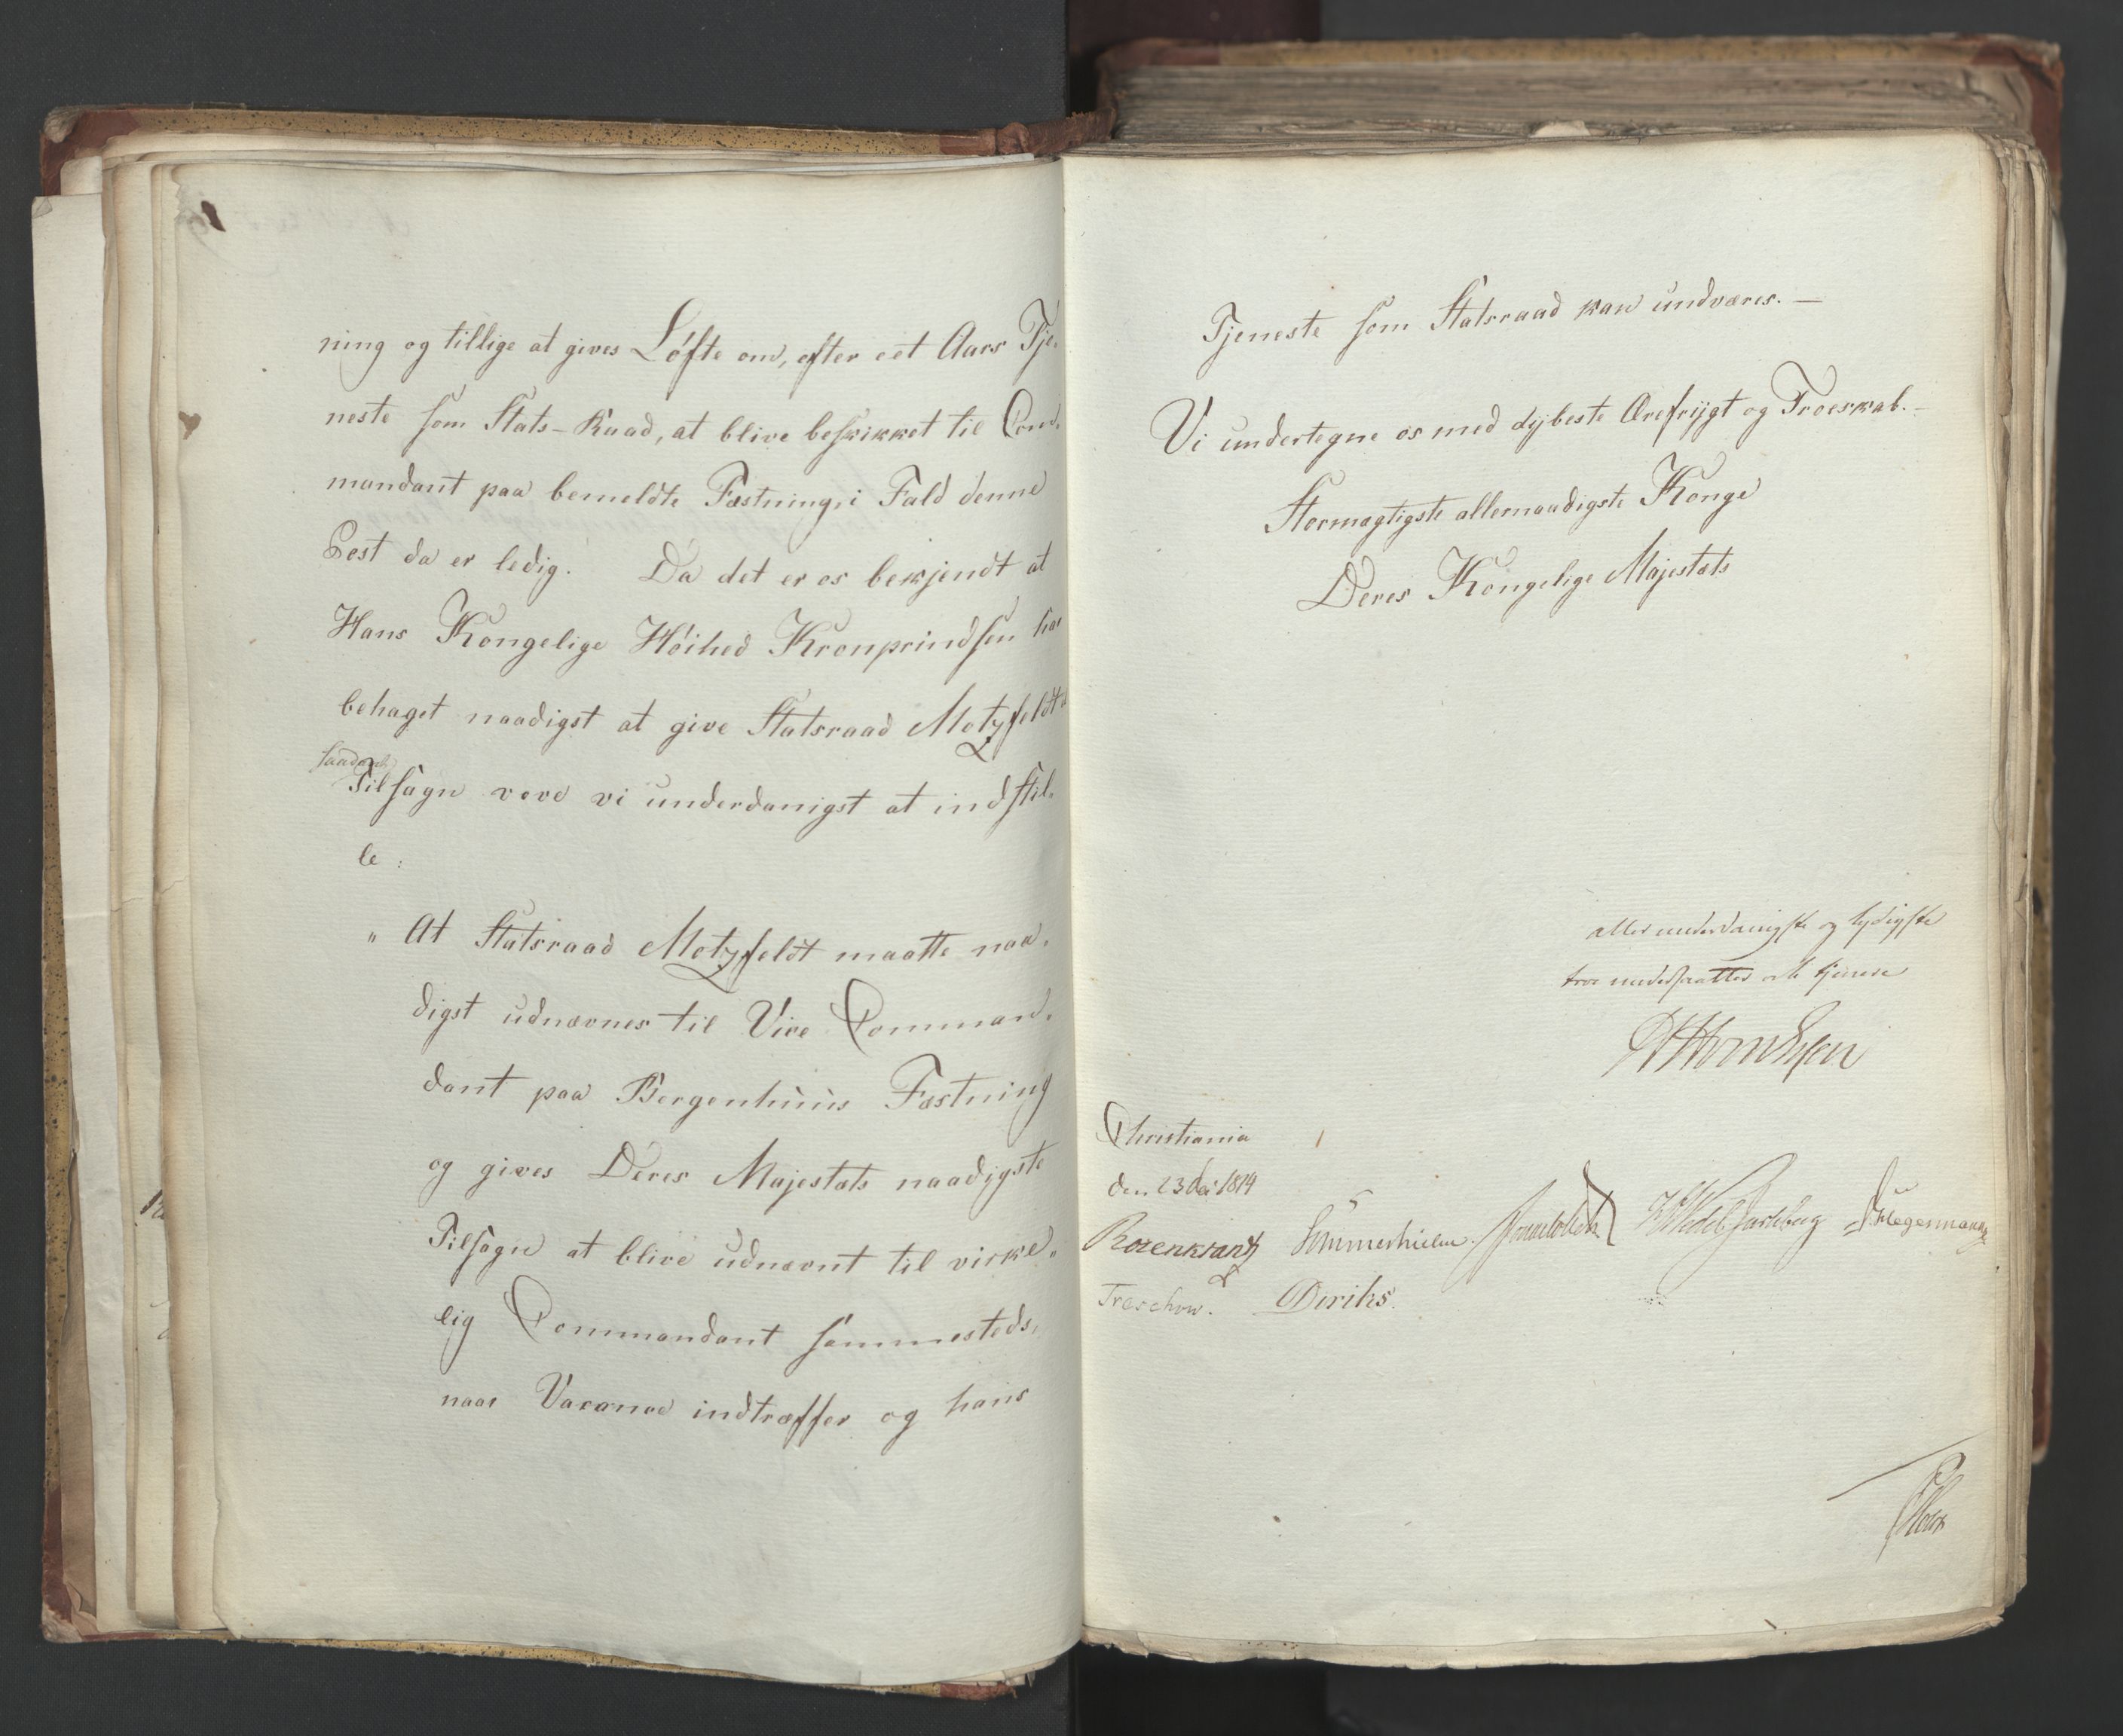 ning og tillige at gives Løfte om, efter eet Aars Tje-
neste som Stats-Raad, at blive beskikket til Com-
mandant paa bemeldte Fæstning, i Fald denne
Post da er ledig. Da det er os bekjendt at
Hans Kongelige Höihed Kronprindsen har
behaget naadigst at give Statsraad Motzfeldt
saadant
Tilsagn vove vi underdanigst at indstil-
le:
" At Statsraad Motzfeldt maatte naa-
digst udnævnes til Vice Comman-
dant paa Bergenhuus Fæstning
og gives Deres Majestæts naadigste
Tilsagn at blive udnævnt til virke-
lig Commandant sammesteds,
naar Vacance indtræffer og hans
Tjeneste som Statsraad kan undværes. —
Vi undertegne os med dybeste Ærefrygt og Troeskab. -
Stormægtigste allernaadigste Konge
Deres Kongelige Majestæts
allerunderdanigste og lydigste
troe undersaatter og tjenere
Christiania
den 23 Dec 1814
Rosenkrantz Sommerhielm. Wedel Jarlsberg Hegermann
Treschow. Diriks.